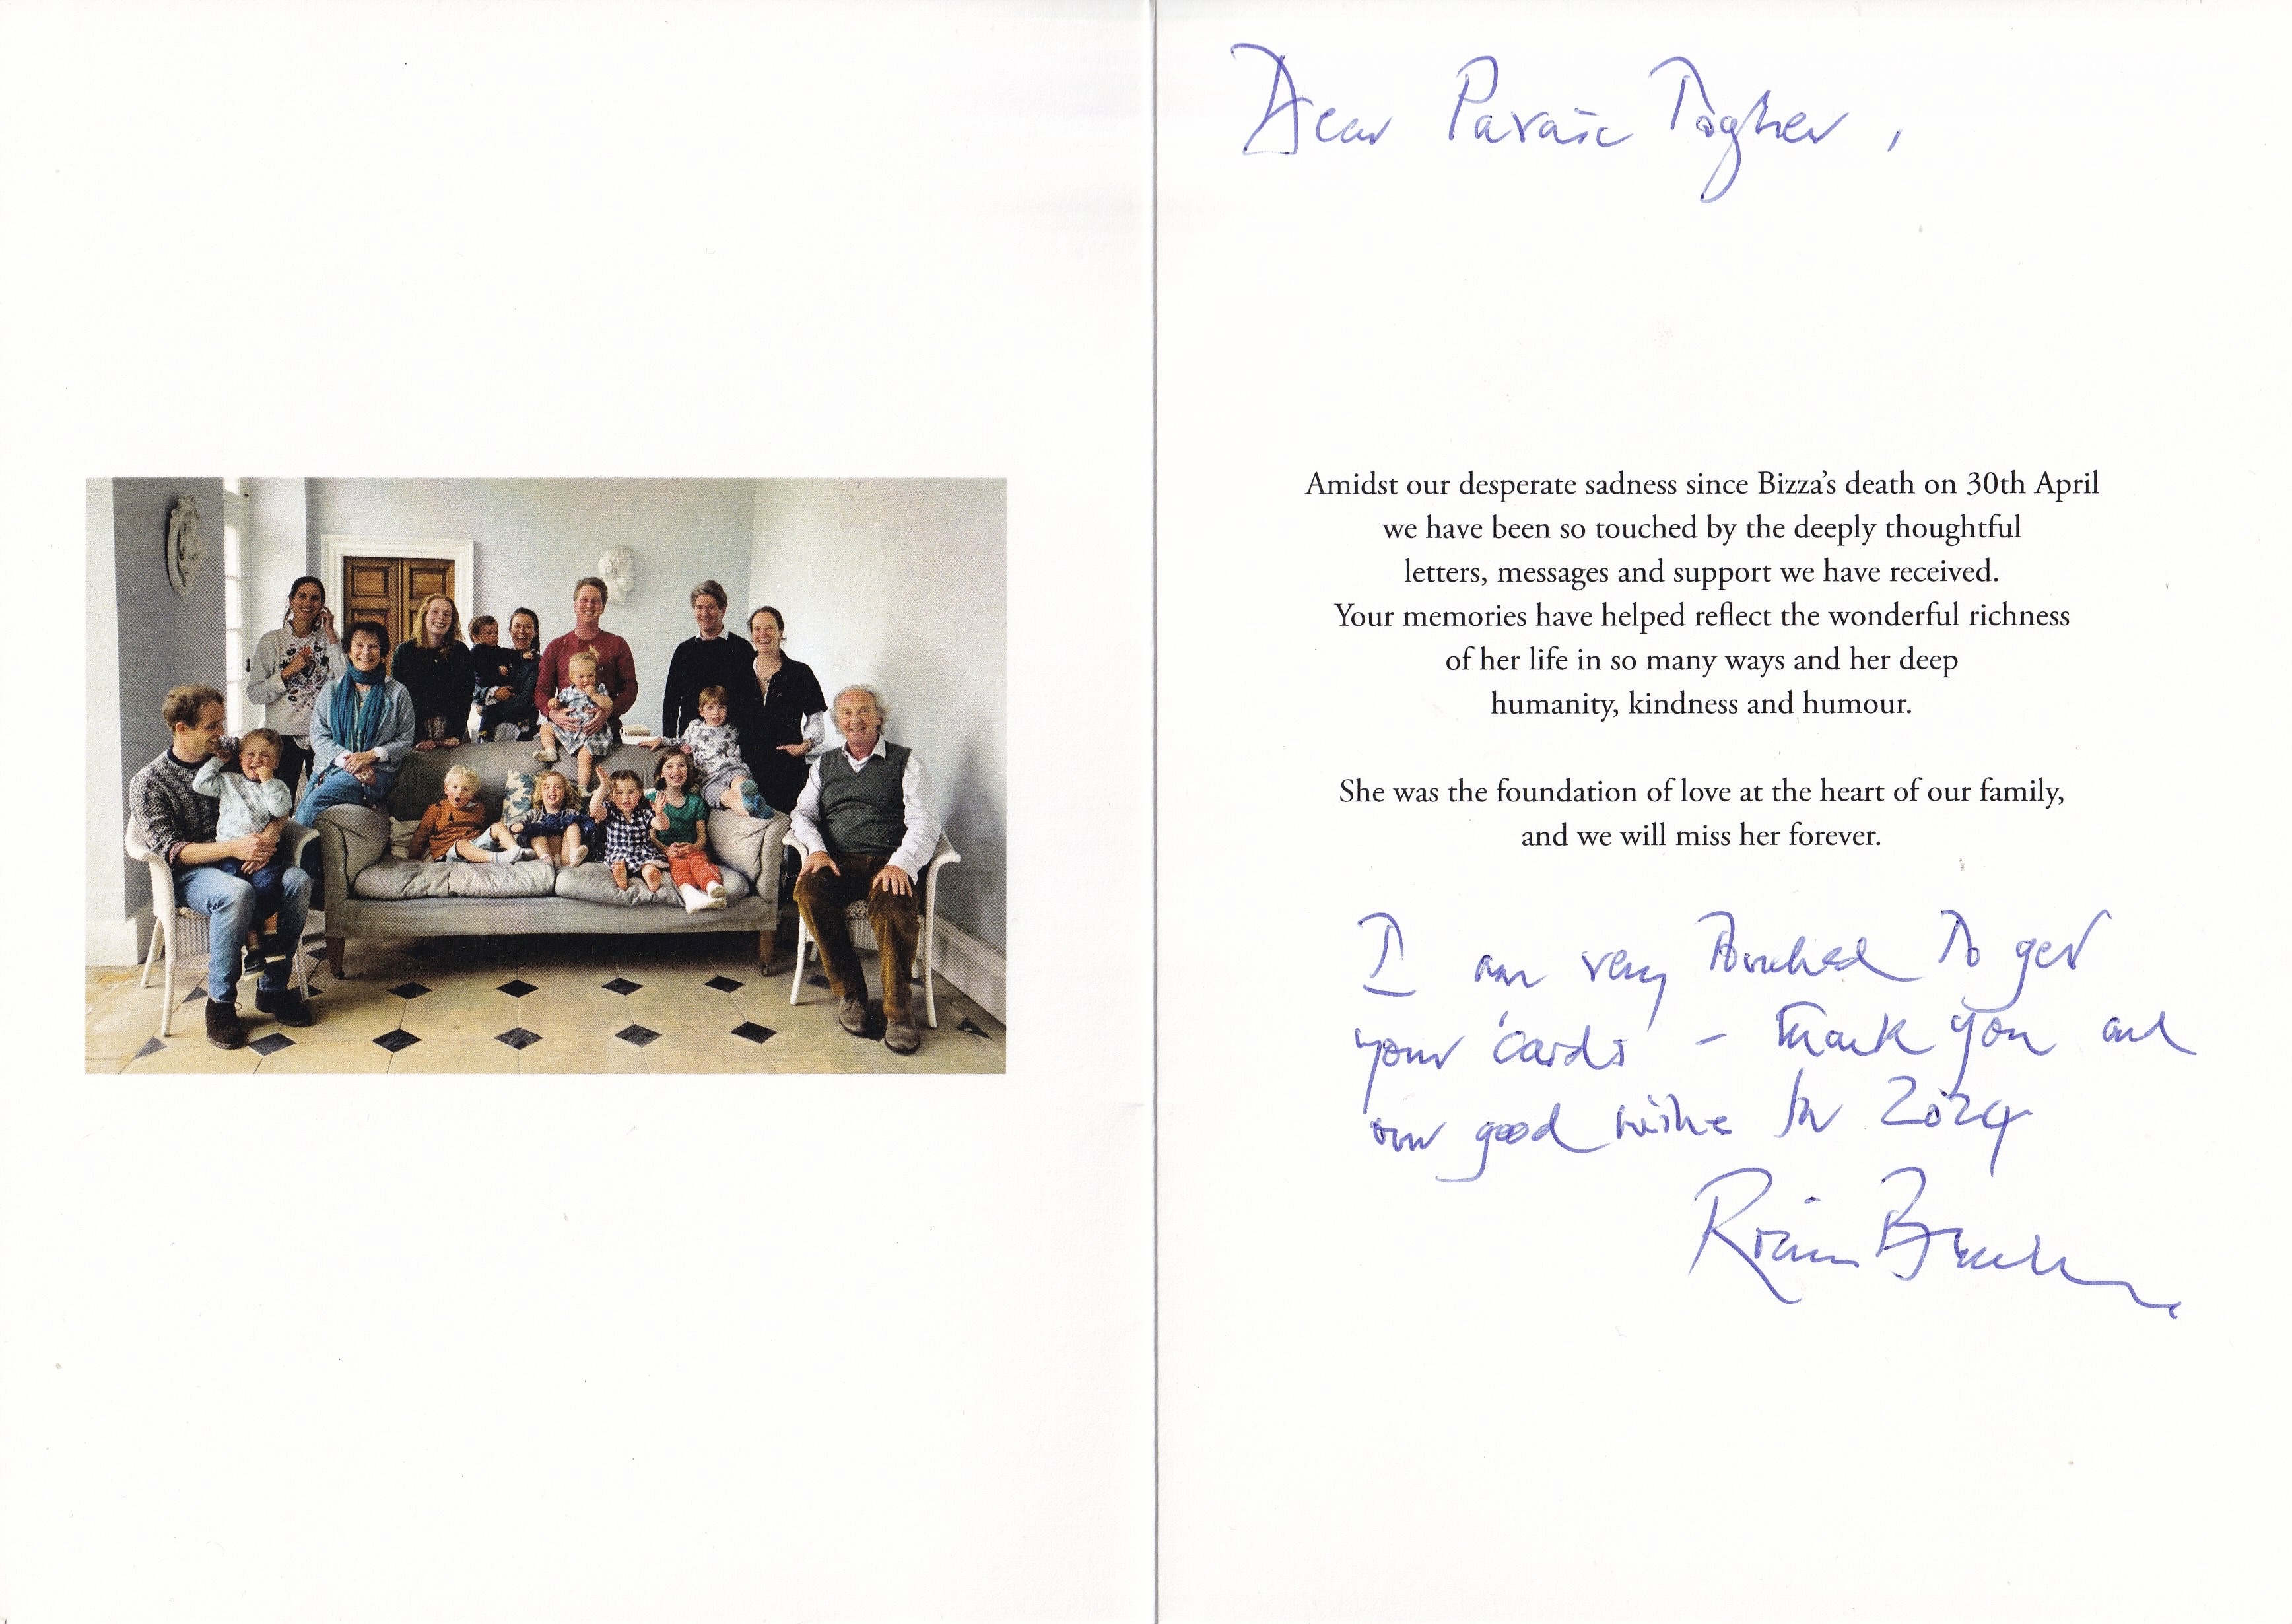 Dear Paraic Togher,
Amidst our desperate sadness since Bizza’s death on 30th April
we have been so touched by the deeply thoughtful
letters, messages and support we have received.
Your memories have helped reflect the wonderful richness
of her life in so many ways and her deep
humanity, kindness and humour.
She was the foundation of love at the heart of our family,
and we will miss her forever.
I am very touched to get
your cards – thank you and
our good wishes for 2024